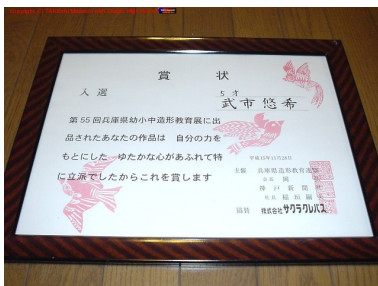 賞状
入選
5才
武市悠希
第55回兵庫県幼小中造形教育展に出
品されたあなたの作品は 自分の力を
もとにした ゆたかな心があふれて特
に立派でしたからこれを賞します
平成15年11月28日
主催 兵庫県造形教育連盟
会長
神戸新聞社
社長 稲垣嗣
協賛 株式会社サクラクレパス